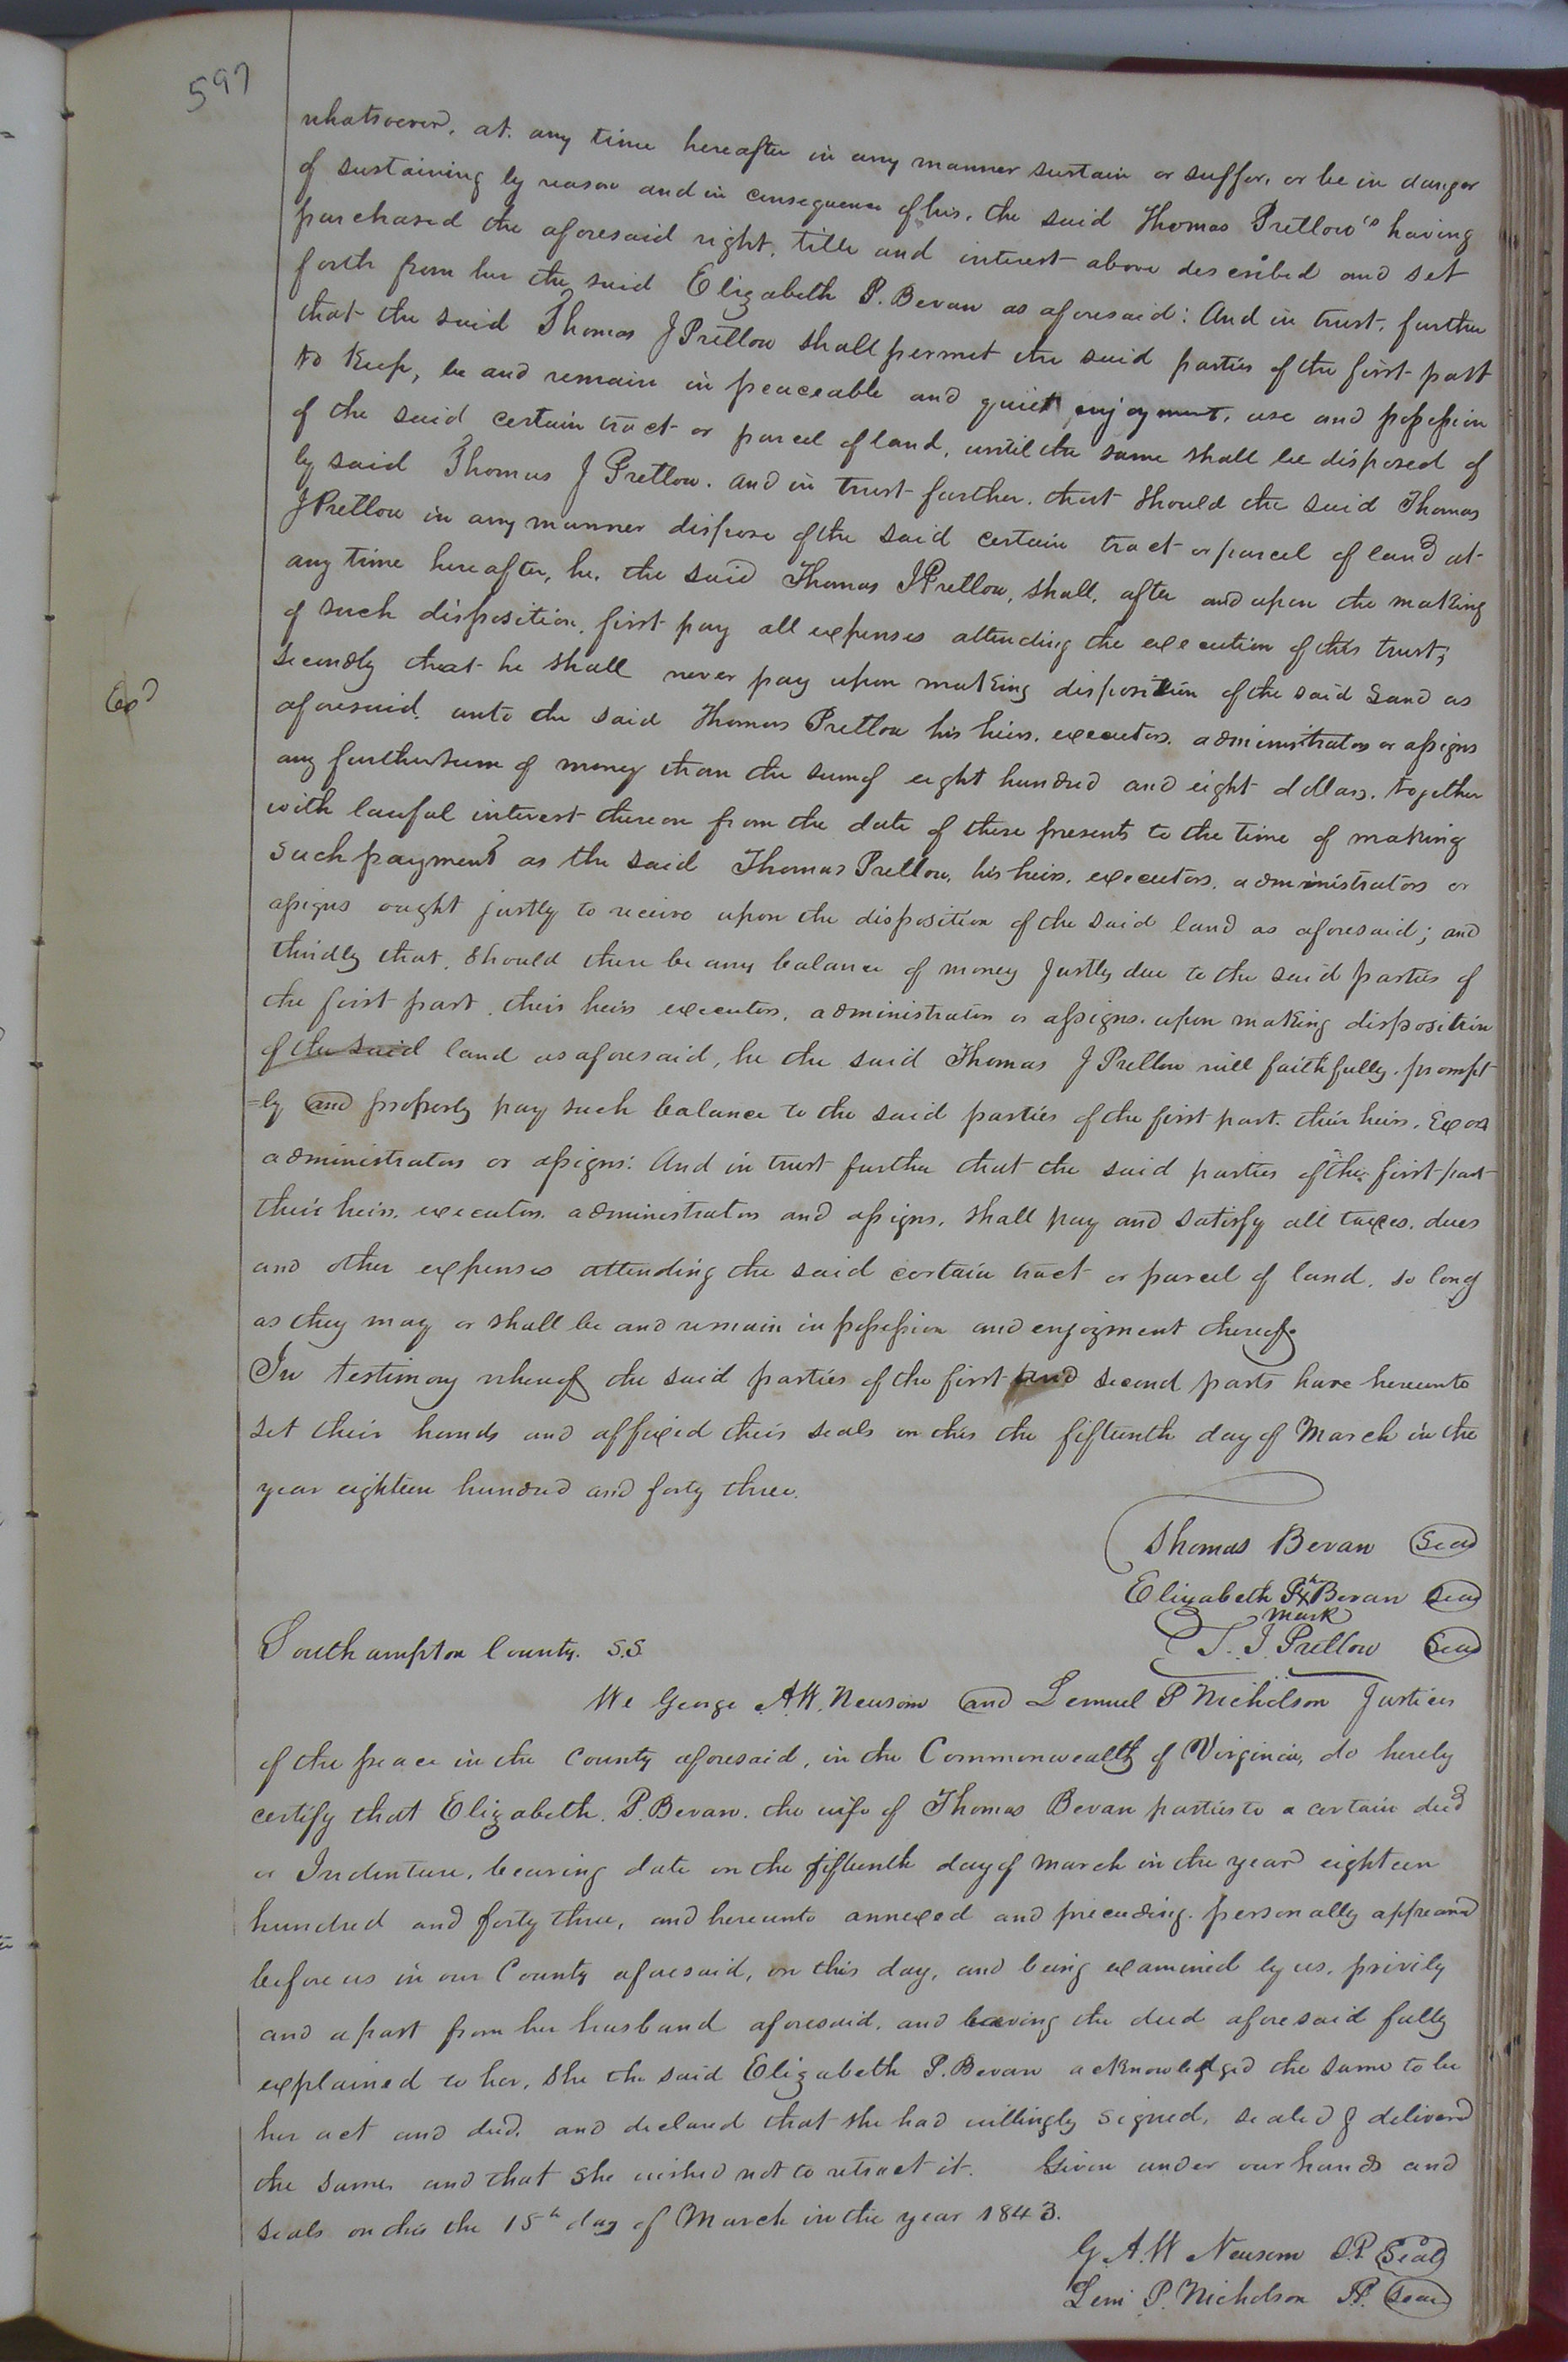 597
whatsoever, at any time hereafter in any manner sustain or suffer, or be in danger
of sustaining by reason and in consequence of his, the said Thomas Pretlow's having
purchased the aforesaid right, title and interest above described and set
forth from her the said Elizabeth P. Bevan as aforesaid: And in trust, further
that the said Thomas J Pretlow shall permit the said parties of the first part
to keep, be and remain in peaceable and quiet enjoyment, use and possession
of the said certain tract or parcel of land, until the same shall be disposed of
by said Thomas J Pretlow. and in trust further, that should the said Thomas
J Pretlow in any manner dispose of the said certain tract or parcel of land at
any time hereafter, he, the said Thomas J Pretlow, shall, after and upon the making
of such disposition, first pay all expenses attending the execution of this trust;
secondly that he shall never pay upon making disposition of the said Land as
aforesaid, unto the said Thomas Pretlow his heirs, executors, administrators or assigns
any further sum of money than the sum of eight hundred and eight dollars, together
with lawful interest thereon from the date of these presents to the time of making
such payment as the said Thomas Pretlow, his heirs, executors, administrators or
assigns ought justly to receive upon the disposition of the said land as aforesaid; and
thirdly that, should there be any balance of money justly due to the said parties of
the first part, their heirs executors, administrators or assigns, upon making disposition
of the said land as aforesaid, he the said Thomas J Pretlow will faithfully, prompt-
=ly and properly pay such balance to the said parties of the first part, their heirs, Exors
administrators or assigns: And in trust further that the said parties of the first part
their heirs, executors, administrators and assigns, shall pay and satisfy all taxes, dues
and other expenses attending the said certain tract or parcel of land, so long
as they may or shall be and remain in possession and enjoyment thereof.
In testimony whereof the said parties of the first and second parts have hereunto
set their hands and affixed their seals on this the fifteenth day of March in the
year eighteen hundred and forty three.
Thomas Bevan Seal
Elizabeth P. X Bevan Seal
mark
T. J. Pretlow Seal
Southampton County. S.S.
We George A.W. Newsom and Lemuel P Nicholson Justices
of the peace in the County aforesaid, in the Commonwealth of Virginia, do hereby
certify that Elizabeth. P. Bevan. the wife of Thomas Bevan parties to a certain deed
or Indenture, bearing date on the fifteenth day of March in the year eighteen
hundred and forty three, and hereunto annexed and preceding, personally appeared
before us in our County aforesaid, on this day, and being examined by us, privily
and apart from her husband aforesaid, and having the deed aforesaid fully
explained to her, she the said Elizabeth P. Bevan acknowledged the same to be
her act and deed, and declared that she had willingly signed, sealed & delivered
the same, and that she wished not to retract it. Given under our hands and
seals on this the 15th day of March in the year 1843.
G. A. W Newsom J.P. Seal
Lem P. Nicholson J.P. Seal